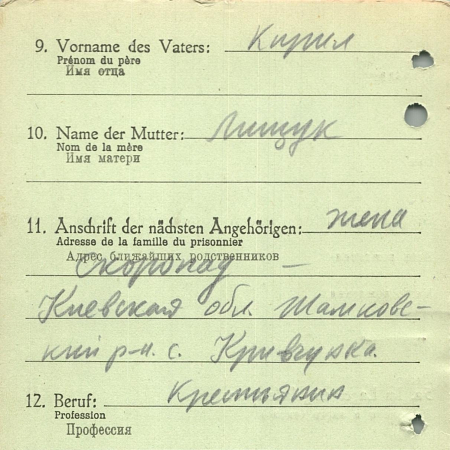 9. Vorname des Vaters: Кирил
Prénom du père
Имя отца
10. Name der Mutter: Мищук
Nom de la mère
Имя матери
11. Anschrift der nächsten Angehörigen: жена
Adresse de la famille du prisonnier
Адрес ближайших родственников
Скоропад –
Киевская обл. Шамковс-
кий р-н. с. Кривчунка.
12. Beruf: Крестьянин
Profession
Профессия